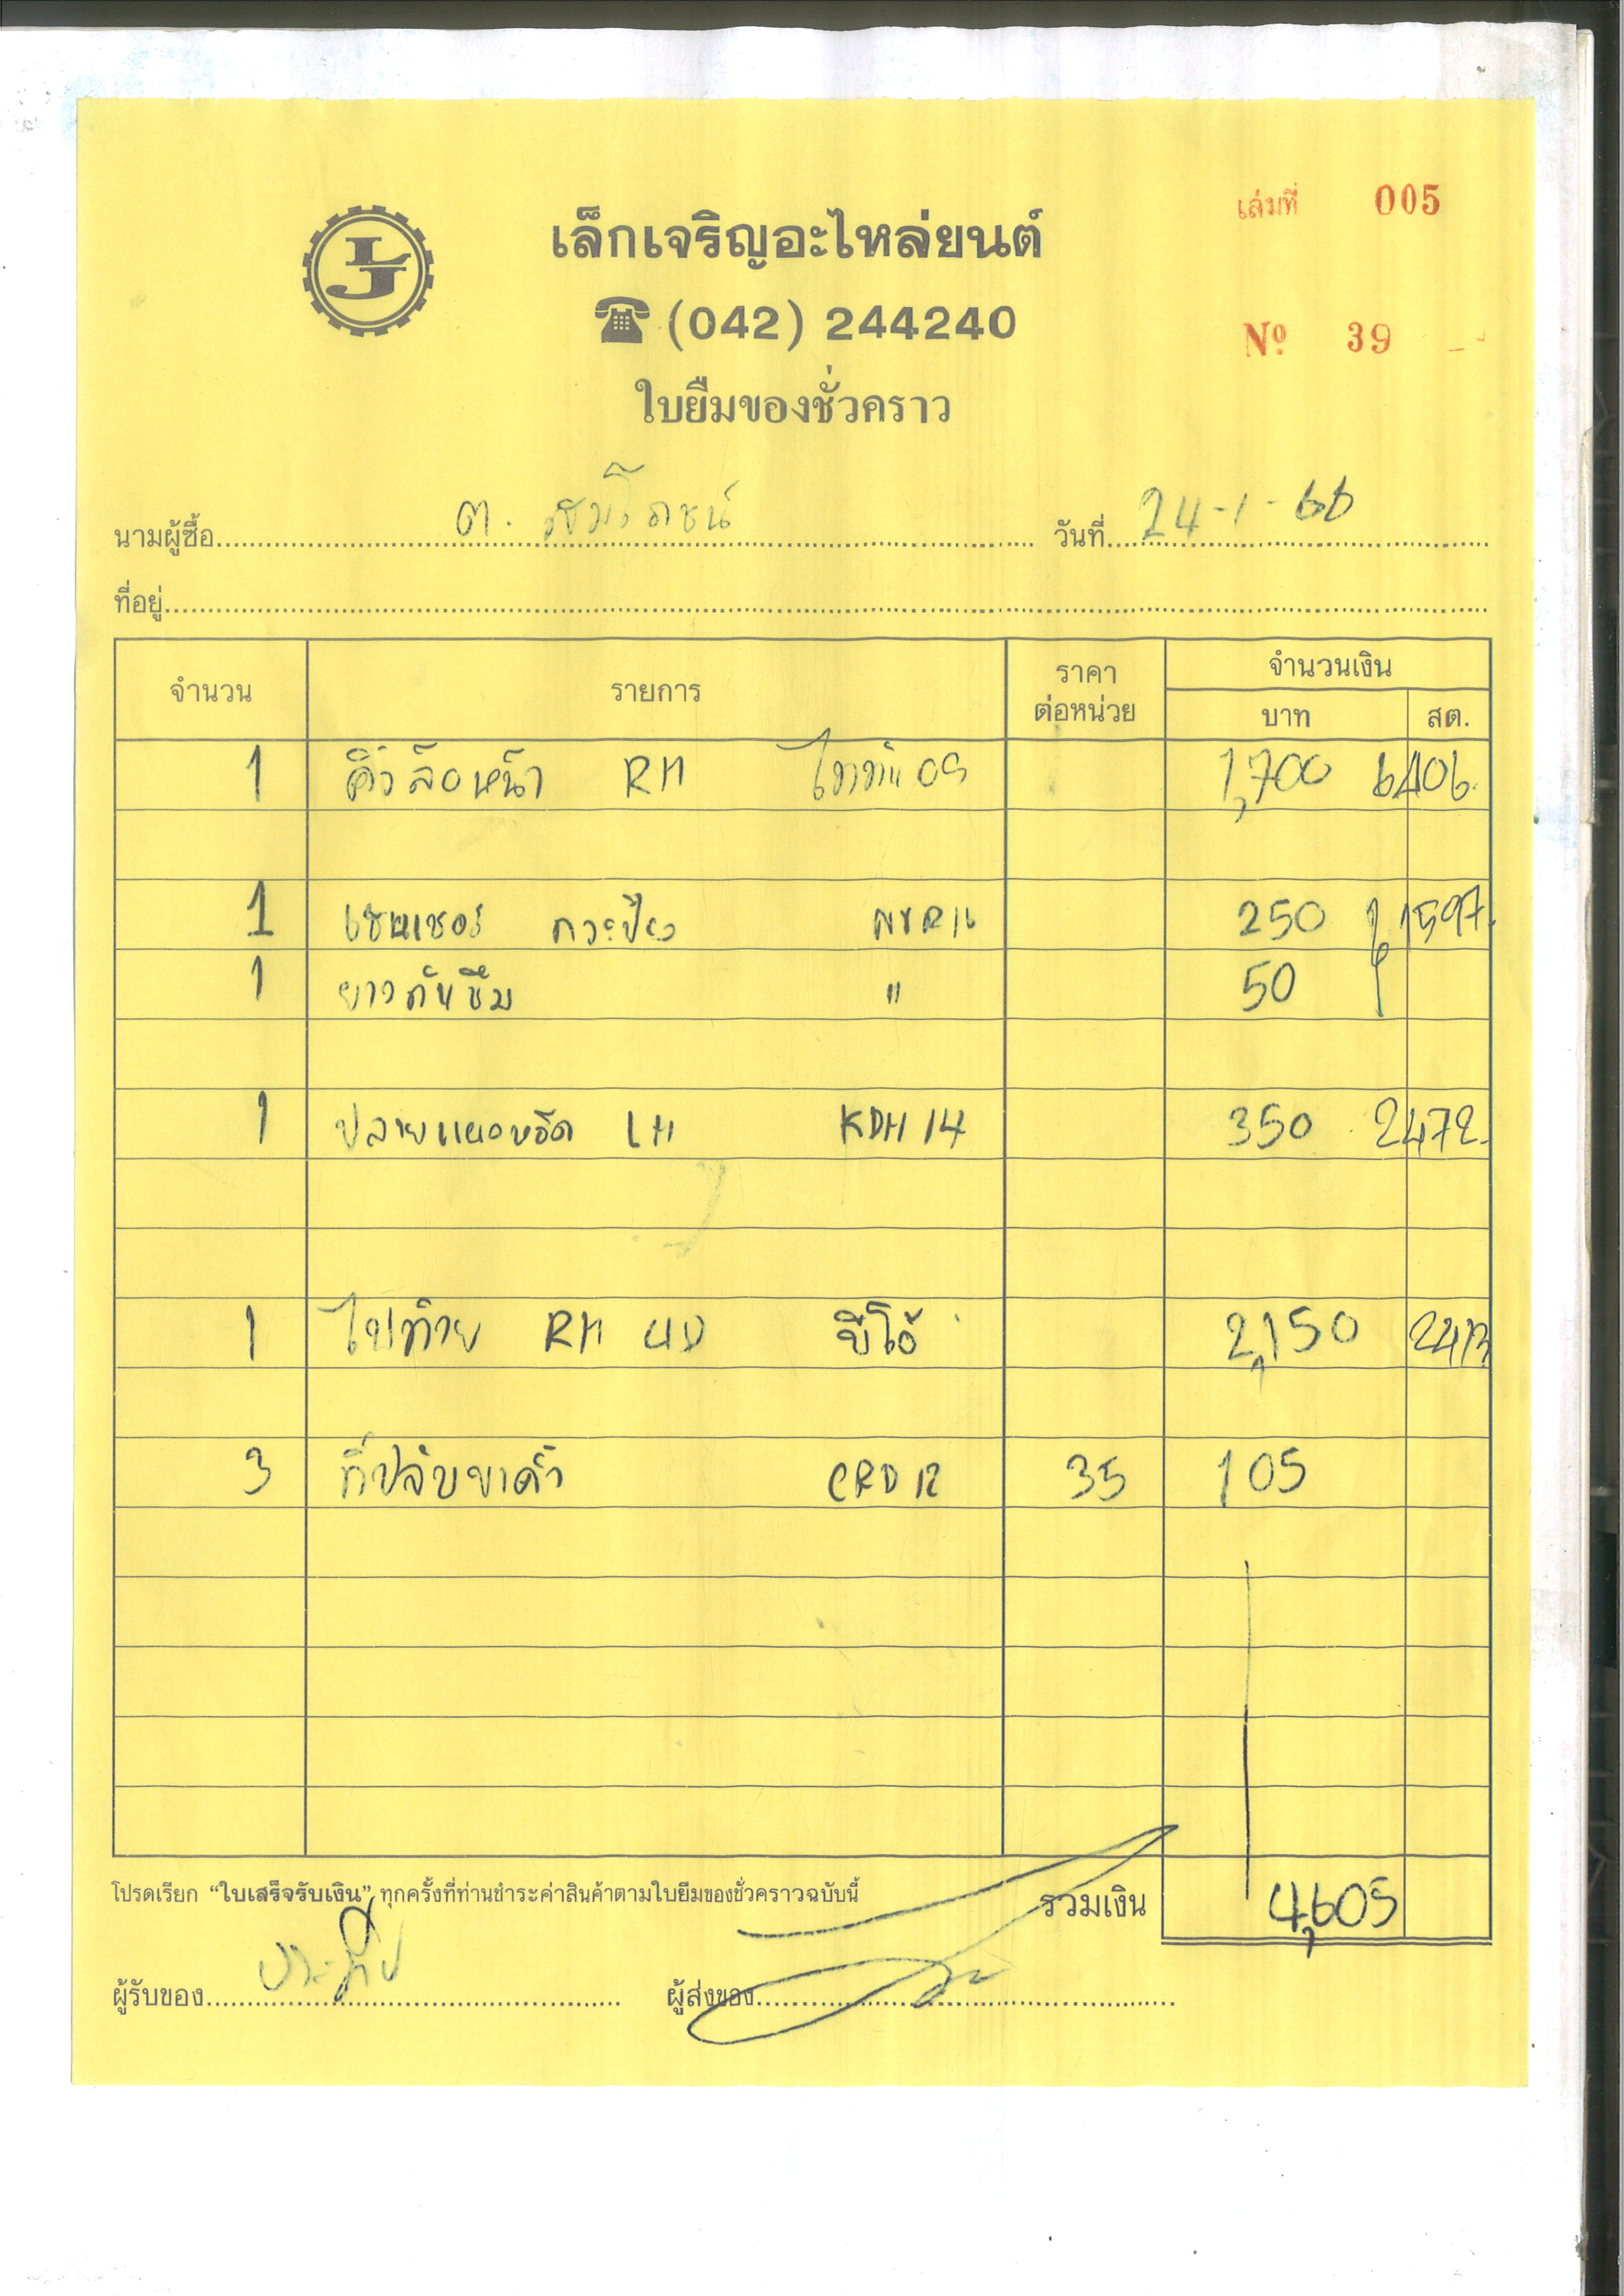 เล่มที่ 005
LJ
เล็กเจริญอะไหล่ยนต์
(042) 244240
Nº 39
ใบยืมของชั่วคราว
นามผู้ซื้อ ต. วันที่ 24-1-66
ที่อยู่
จำนวน รายการ ราคาต่อหน่วย จำนวนเงิน
บาท สต.
1 คิ้วล้อหน้า RH ไททัน 09 1,700 6406.
1 เซนเซอร์ 250 1597.
1 ยางกันซึม " 50
1 ปลายแขน LH KDH 14 350 2472.
1 ไฟท้าย RH วีโก้ 2,150
3 CRD 12 35 105
โปรดเรียก “ใบเสร็จรับเงิน” ทุกครั้งที่ท่านชำระค่าสินค้าตามใบยืมของชั่วคราวฉบับนี้
รวมเงิน 4,605
ผู้รับของ ประทีป ผู้ส่งของ